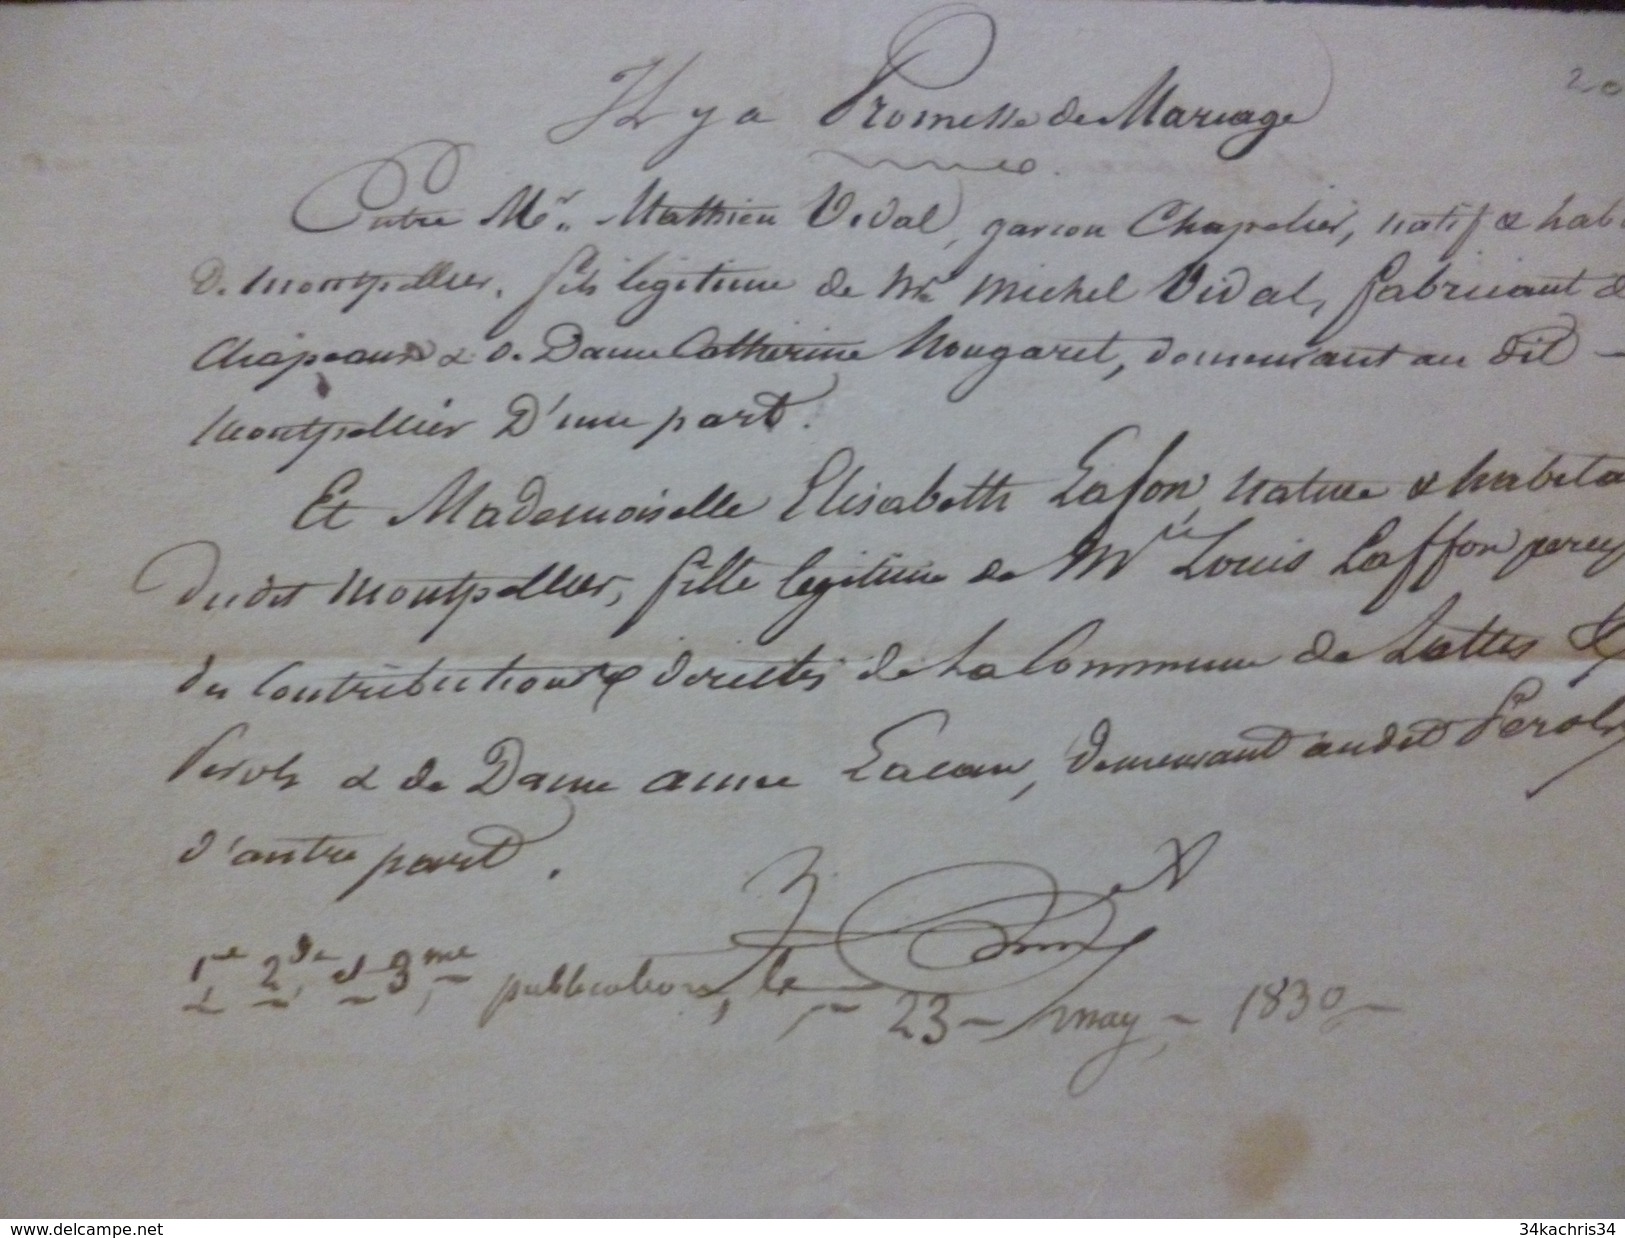 20
Il y a Promesse de Mariage
Entre Mr. Mathieu Vidal, garcon Chapelier, natif & hab
de Montpellier, fils legitime de Mr Michel Vidal, fabricant d
Chapeaux & de Dame Catherine Nougaret, demeurant au dit
Montpellier D'une part.
Et Mademoiselle Elisabeth Lafon, native & habita
Dudit Montpellier, fille legitime de Mr Louis Laffon percep
des Contributions directes de la Commune de Lattes &
Perols & de Dame anne Lacan, demeurant audit Perols
d'autre part.
1re 2de et 3me publication, le 23 may 1830
www.delcampe.net
34kachris34